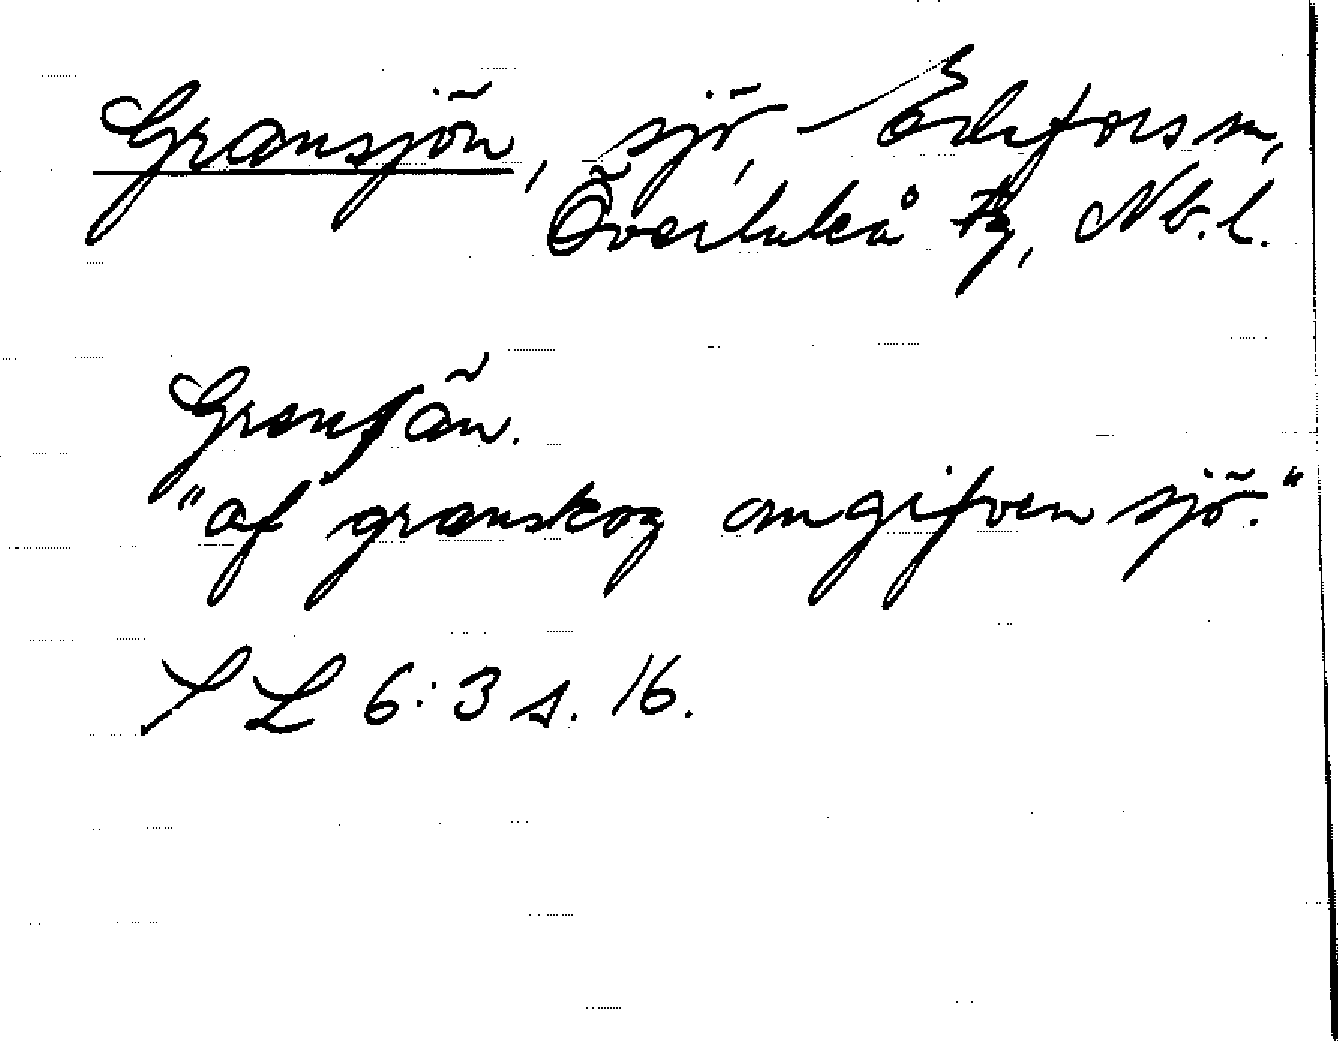 Gransjön, sjö, Edefors sn,
Överluleå tg, Nb. l.
"af granskog omgifven sjö."
SL 6:3 s. 16.